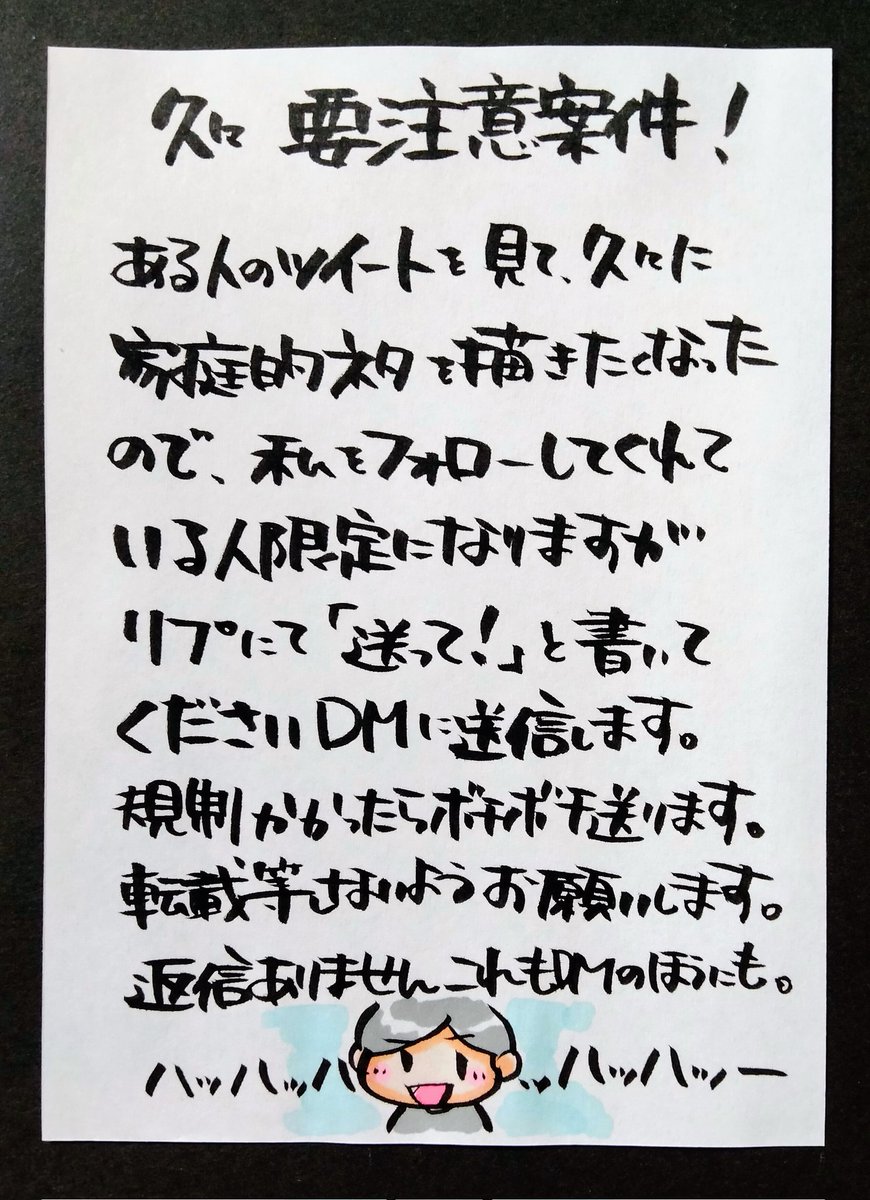 久々 要注意案件!
ある人のツイートを見て、久々に
家庭的ネタを描きたくなった
ので、私をフォローしてくれて
いる人限定になりますが
リプにて「送って!」と書いて
くださいDMに送信します。
規制かかったらボチボチ送ります。
転載等さないようお願いします。
返信ありませんこれもDMのほうにも。
ハッハッハ ッハッハッハッー